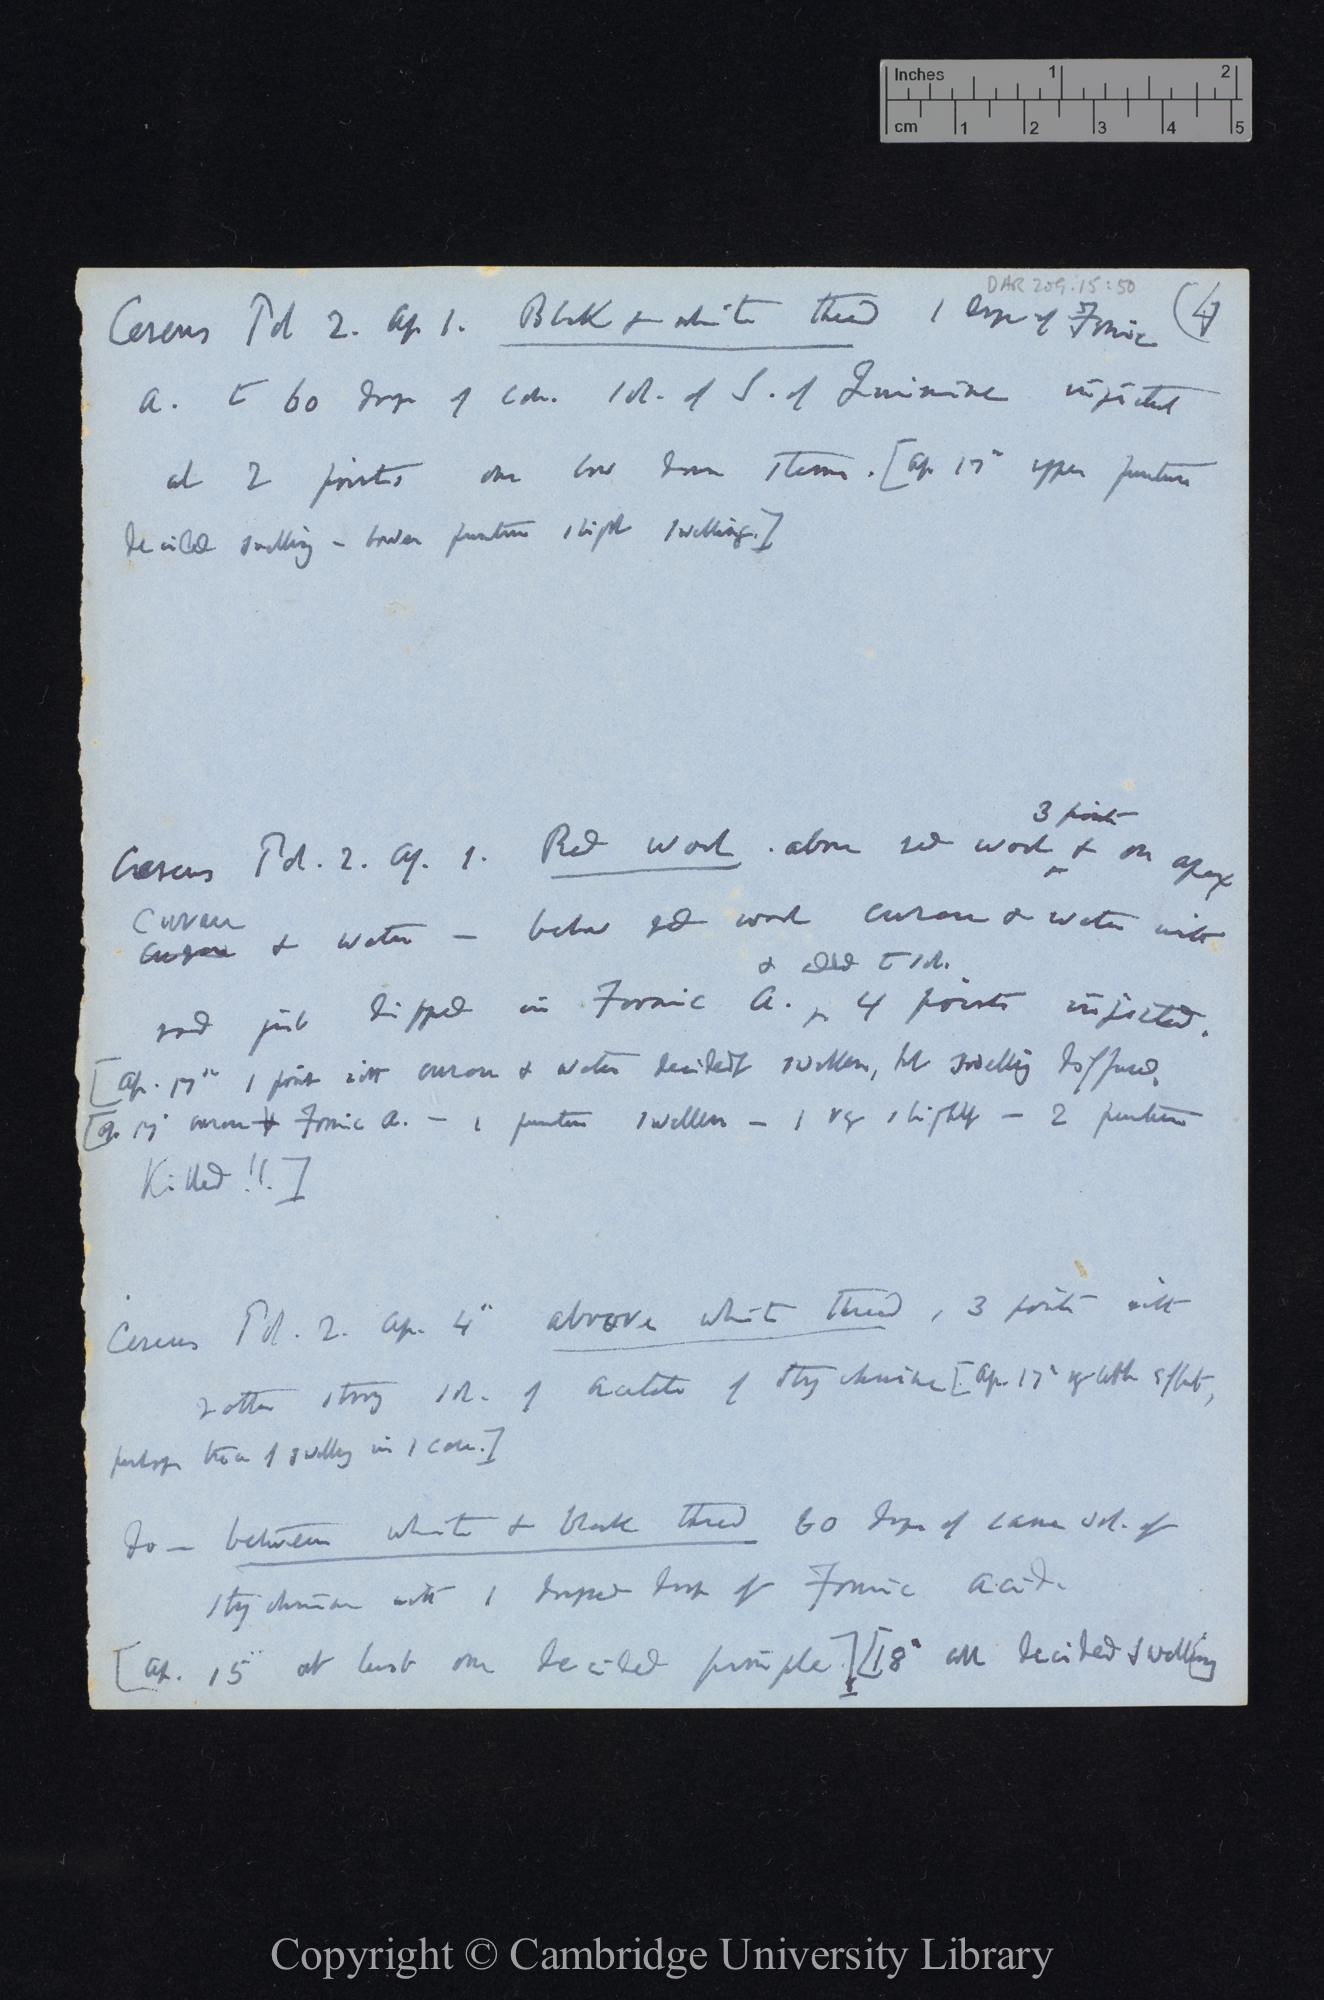 Inches 1 2
cm 1 2 3 4 5
DAR 209.15:50
Cereus Pd 2. Ap 1. Black & white thread 1 drop of Formic (4)
A. to 60 drops of con. sol. of S. of Quinine injected
at 2 points one low down stem. [Ap 17th upper puncture
decided swelling – lower puncture slight swelling.]
3 points
Cereus Pd. 2. Ap. 1. Red wool. above red wool & on apex
Curare
& water — below red wool curare & water with
& added to sol.
rod just dipped in Formic A. 4 points injected.
[Ap. 17th 1 point with curare & water decidedly swollen, but swelling diffused,
[Ap 17 curare & Formic A. — 1 puncture swollen — 1 vy slightly — 2 puncture
Killed!!.]
Cereus Pd. 2. Ap. 4th above white thread, 3 points with
rather strong sol. of acetate of strychnine [Ap. 17th vy little effect,
perhaps trace of swelling in 1 case.]
do — between white & black thread 60 drops of same sol. of
strychnine with 1 drop of Formic Acid.
[Ap. 15 at least one decided pimple.] [18th all decided swelling
Copyright © Cambridge University Library